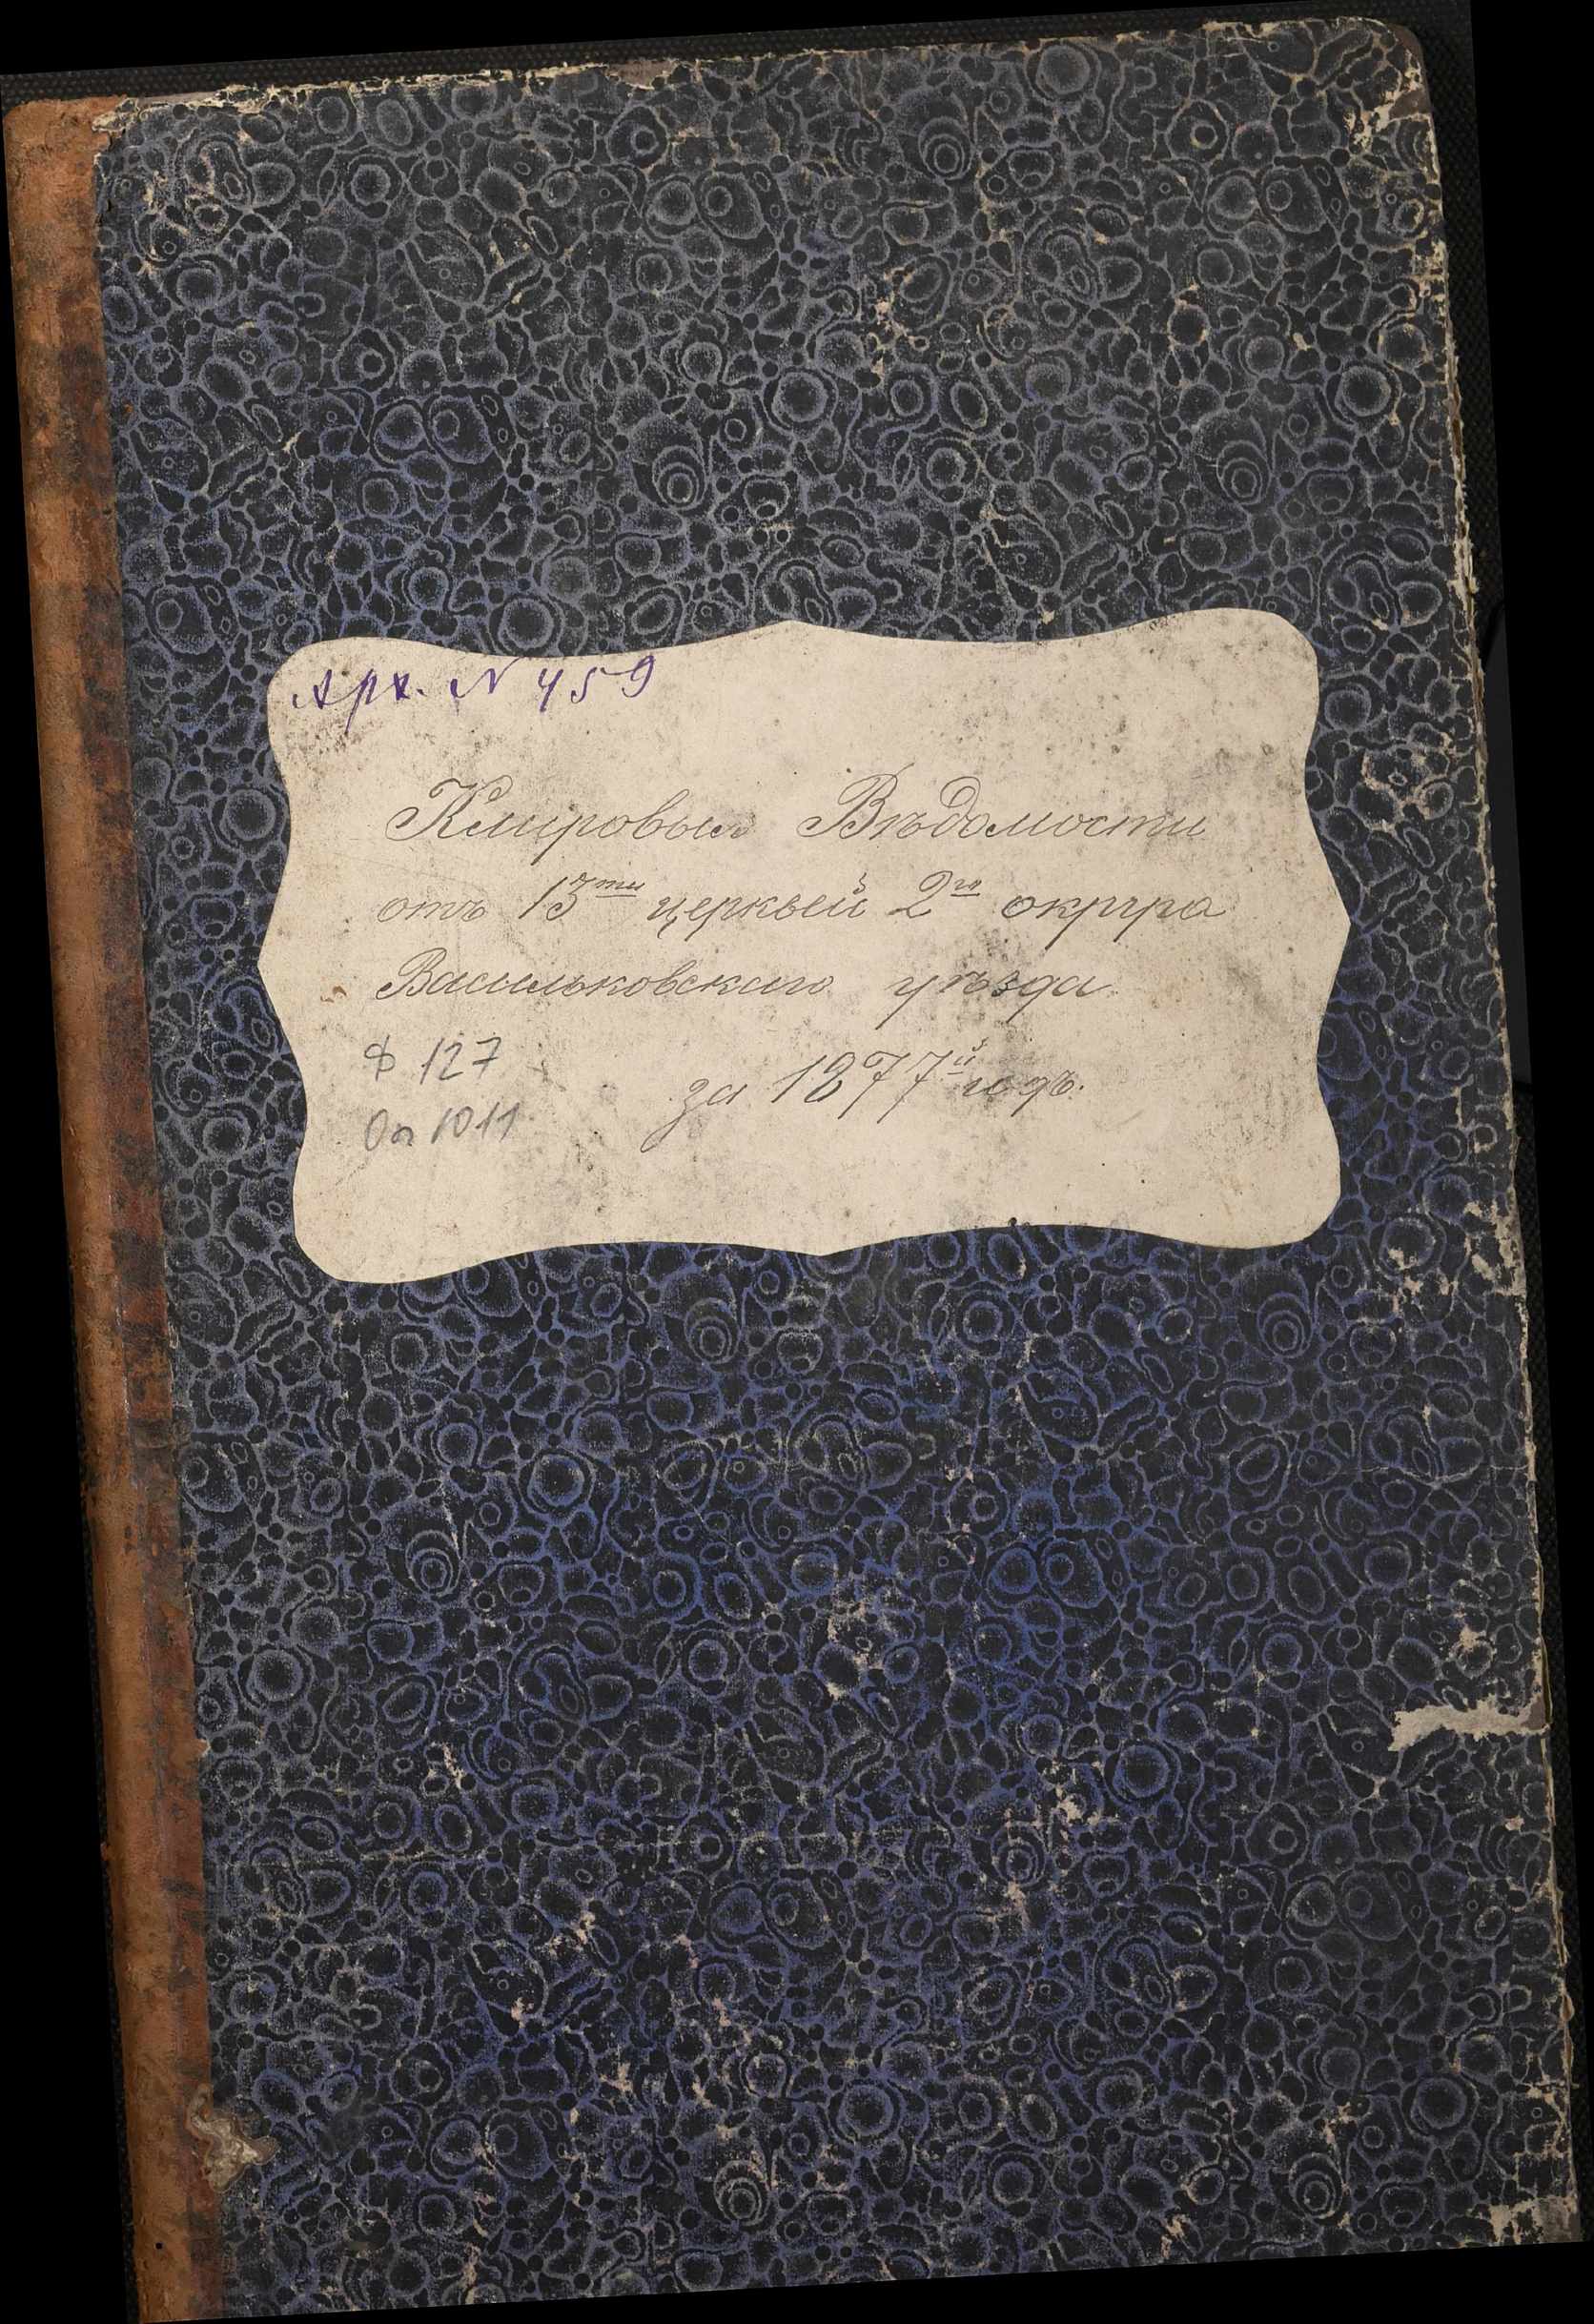 Арх. N 459
Клировыя Вѣдомости
отъ 13ти церквей 2го округа
Васильковскаго уѣзда
за 1877й годъ.
Ф 127
Оп 1011